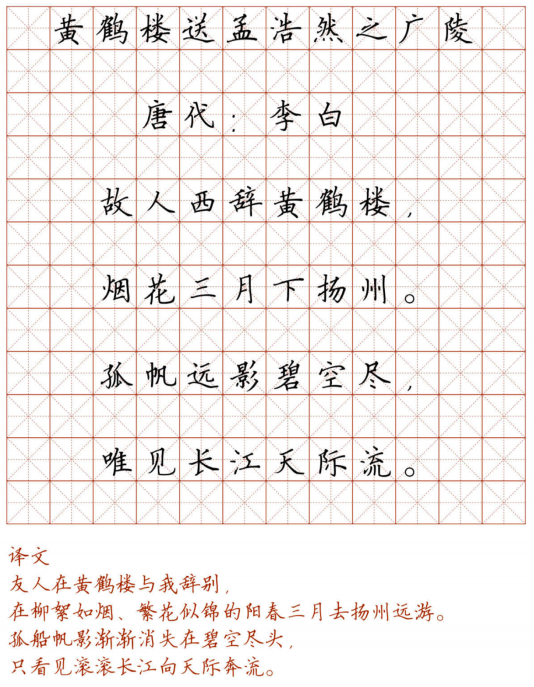 黄鹤楼送孟浩然之广陵
唐代：李白
故人西辞黄鹤楼，
烟花三月下扬州。
孤帆远影碧空尽，
唯见长江天际流。
译文
友人在黄鹤楼与我辞别，
在柳絮如烟、繁花似锦的阳春三月去扬州远游。
孤船帆影渐渐消失在碧空尽头，
只看见滚滚长江向天际奔流。